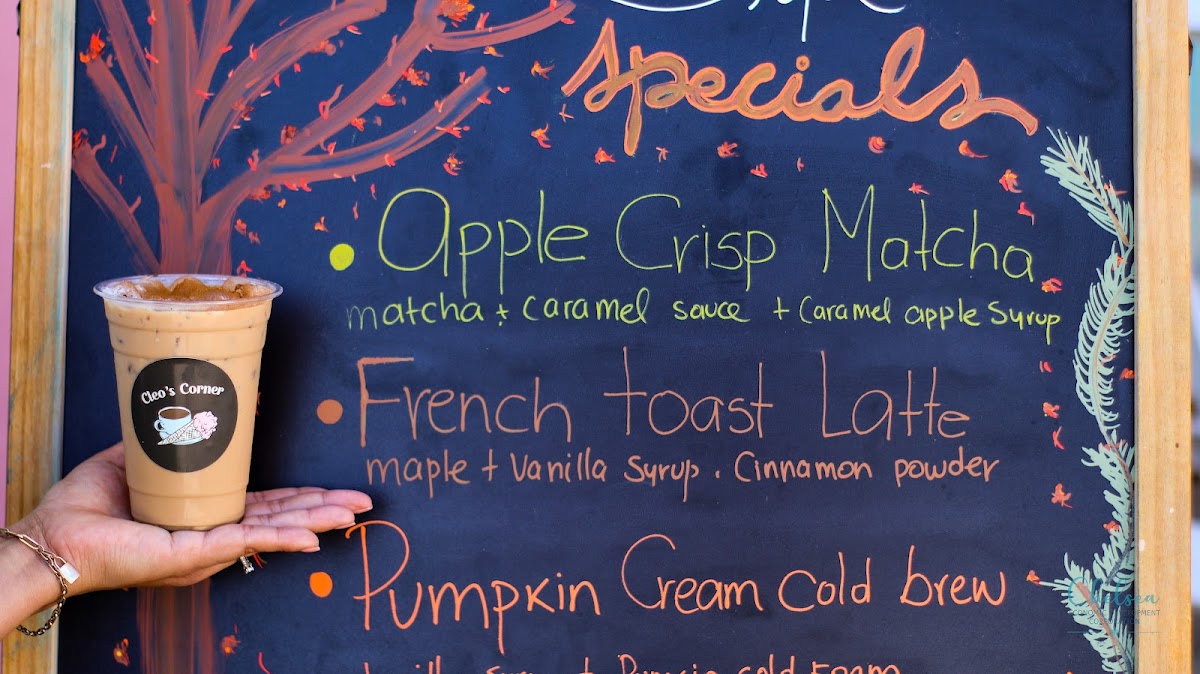 specials
Apple Crisp Matcha
matcha + caramel sauce + Caramel apple Syrup
French toast Latte
maple + Vanilla Syrup . Cinnamon powder
Pumpkin Cream Cold brew
cold Foam
Cleo's Corner
Chelsea